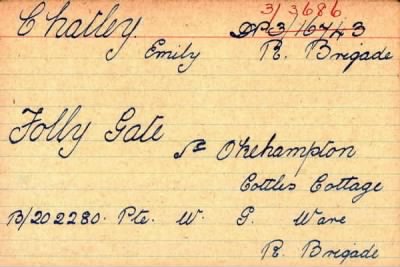 3/3686
Chatley DP3/167/43
Emily R. Brigade
Folly Gate
Nr Okehampton
Cottles Cottage
B/202280. Pte. W. G. Ware
R. Brigade